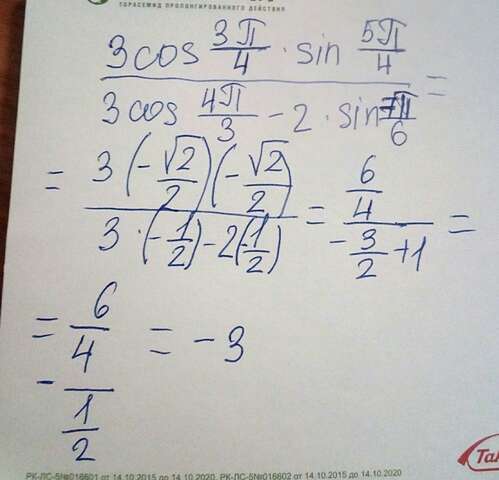 ТОРАСЕМИД ПРОЛОНГИРОВАННОГО ДЕЙСТВИЯ
3cos 3π/4 · sin 5π/4
/ (3cos 4π/3 - 2 · sin 7π/6) =
= 3(-√2/2)(-√2/2) / (3 · (-1/2) - 2(-1/2)) = (6/4) / (-3/2 + 1) =
= - (6/4) / (1/2) = -3
РК-ЛС-5№016601 от 14.10.2015 до 14.10.2020, РК-ЛС-5№016602 от 14.10.2015 до 14.10.2020